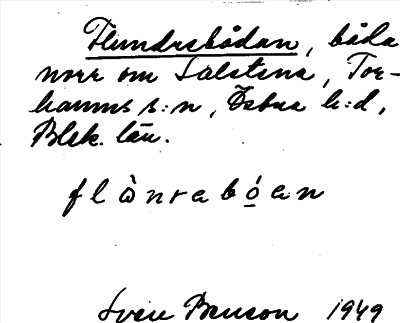 Flundrebådan, båda
norr om Salstena, Tor-
hamns s:n, Östra h:d,
Blek. län.
flònrabóan
Sven Benson 1949